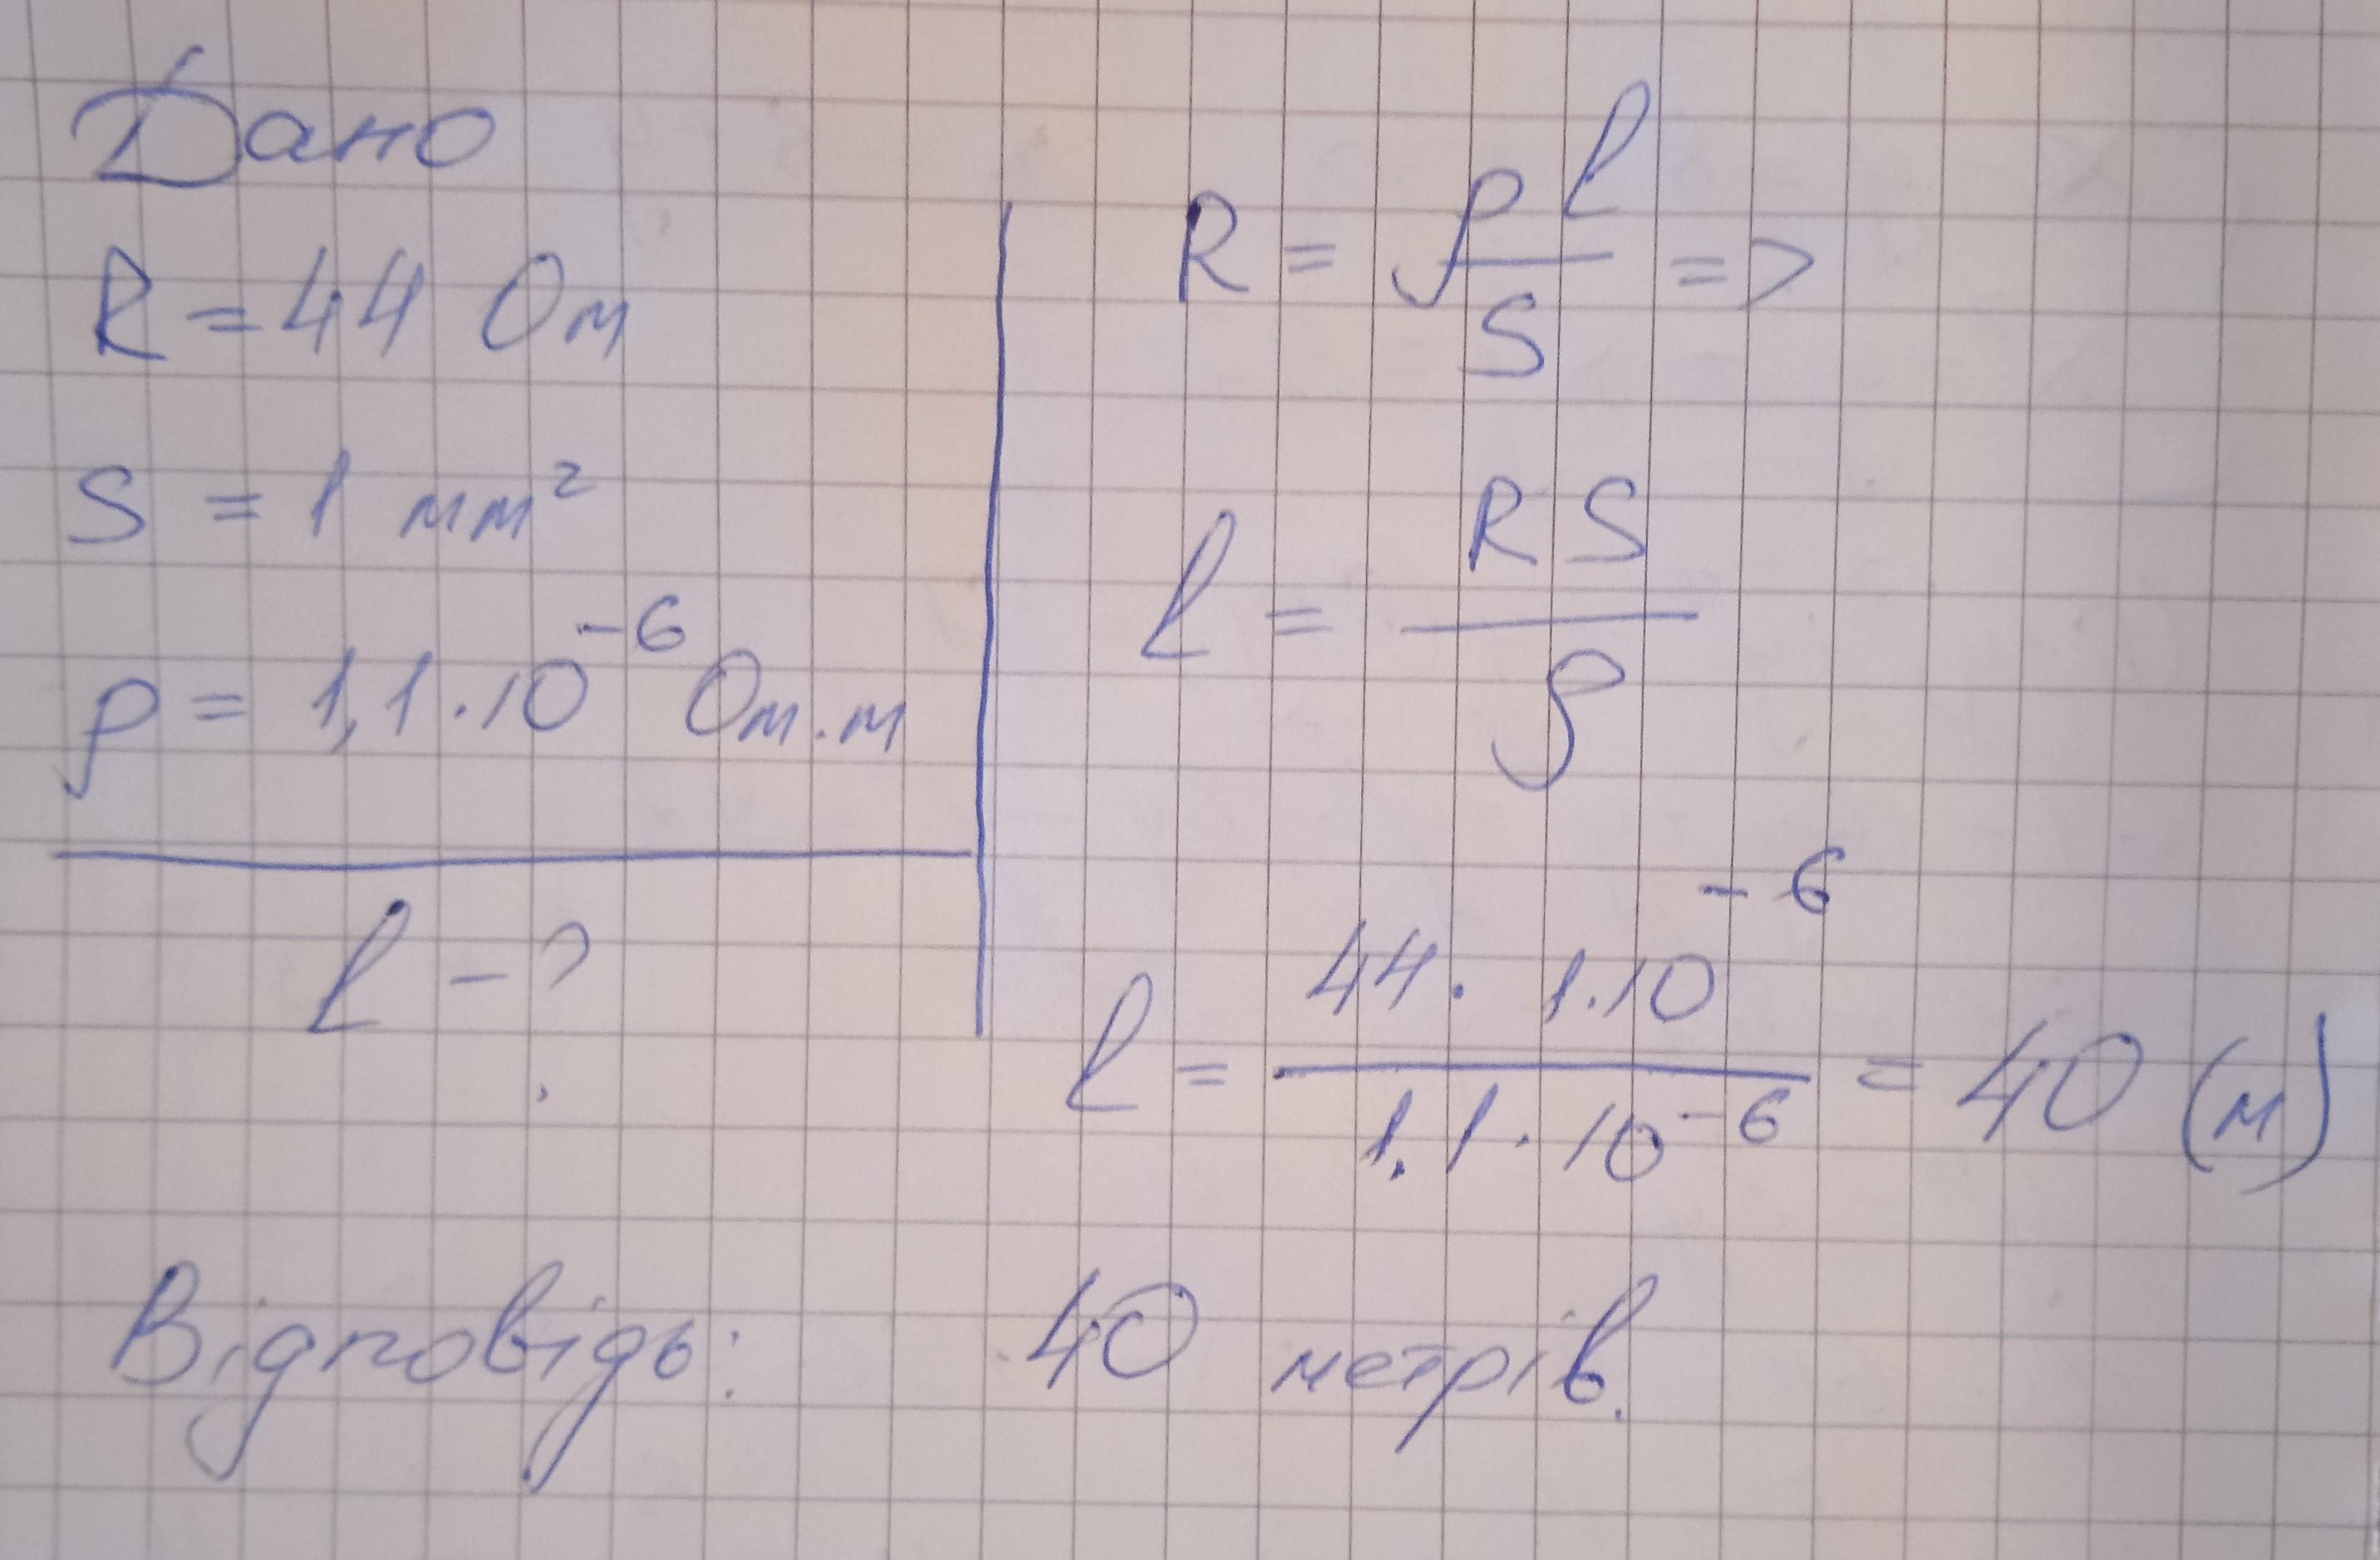 Дано
R = 44 Ом
S = 1 мм²
ρ = 1,1 · 10⁻⁶ Ом·м
l - ?
R = ρl/S =>
l = RS/ρ
l = 44 · 1·10⁻⁶ / 1,1 · 10⁻⁶ = 40 (м)
Відповідь: 40 метрів.